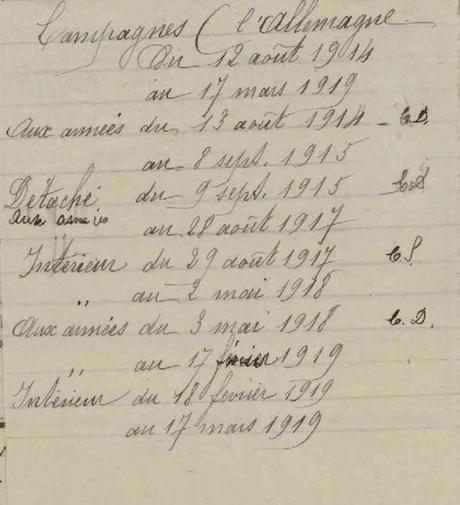 Campagnes ( l'Allemagne
Du 12 août 1914
au 17 mars 1919
Aux armées du 13 août 1914 - C.D.
au 8 sept. 1915
Détaché du 9 sept. 1915 C.S
Aux armées
au 28 août 1917
Intérieur du 29 août 1917 C.S.
" au 2 mai 1918
Aux armées du 3 mai 1918 C.D.
" au 17 février 1919
Intérieur du 18 février 1919
au 17 mars 1919